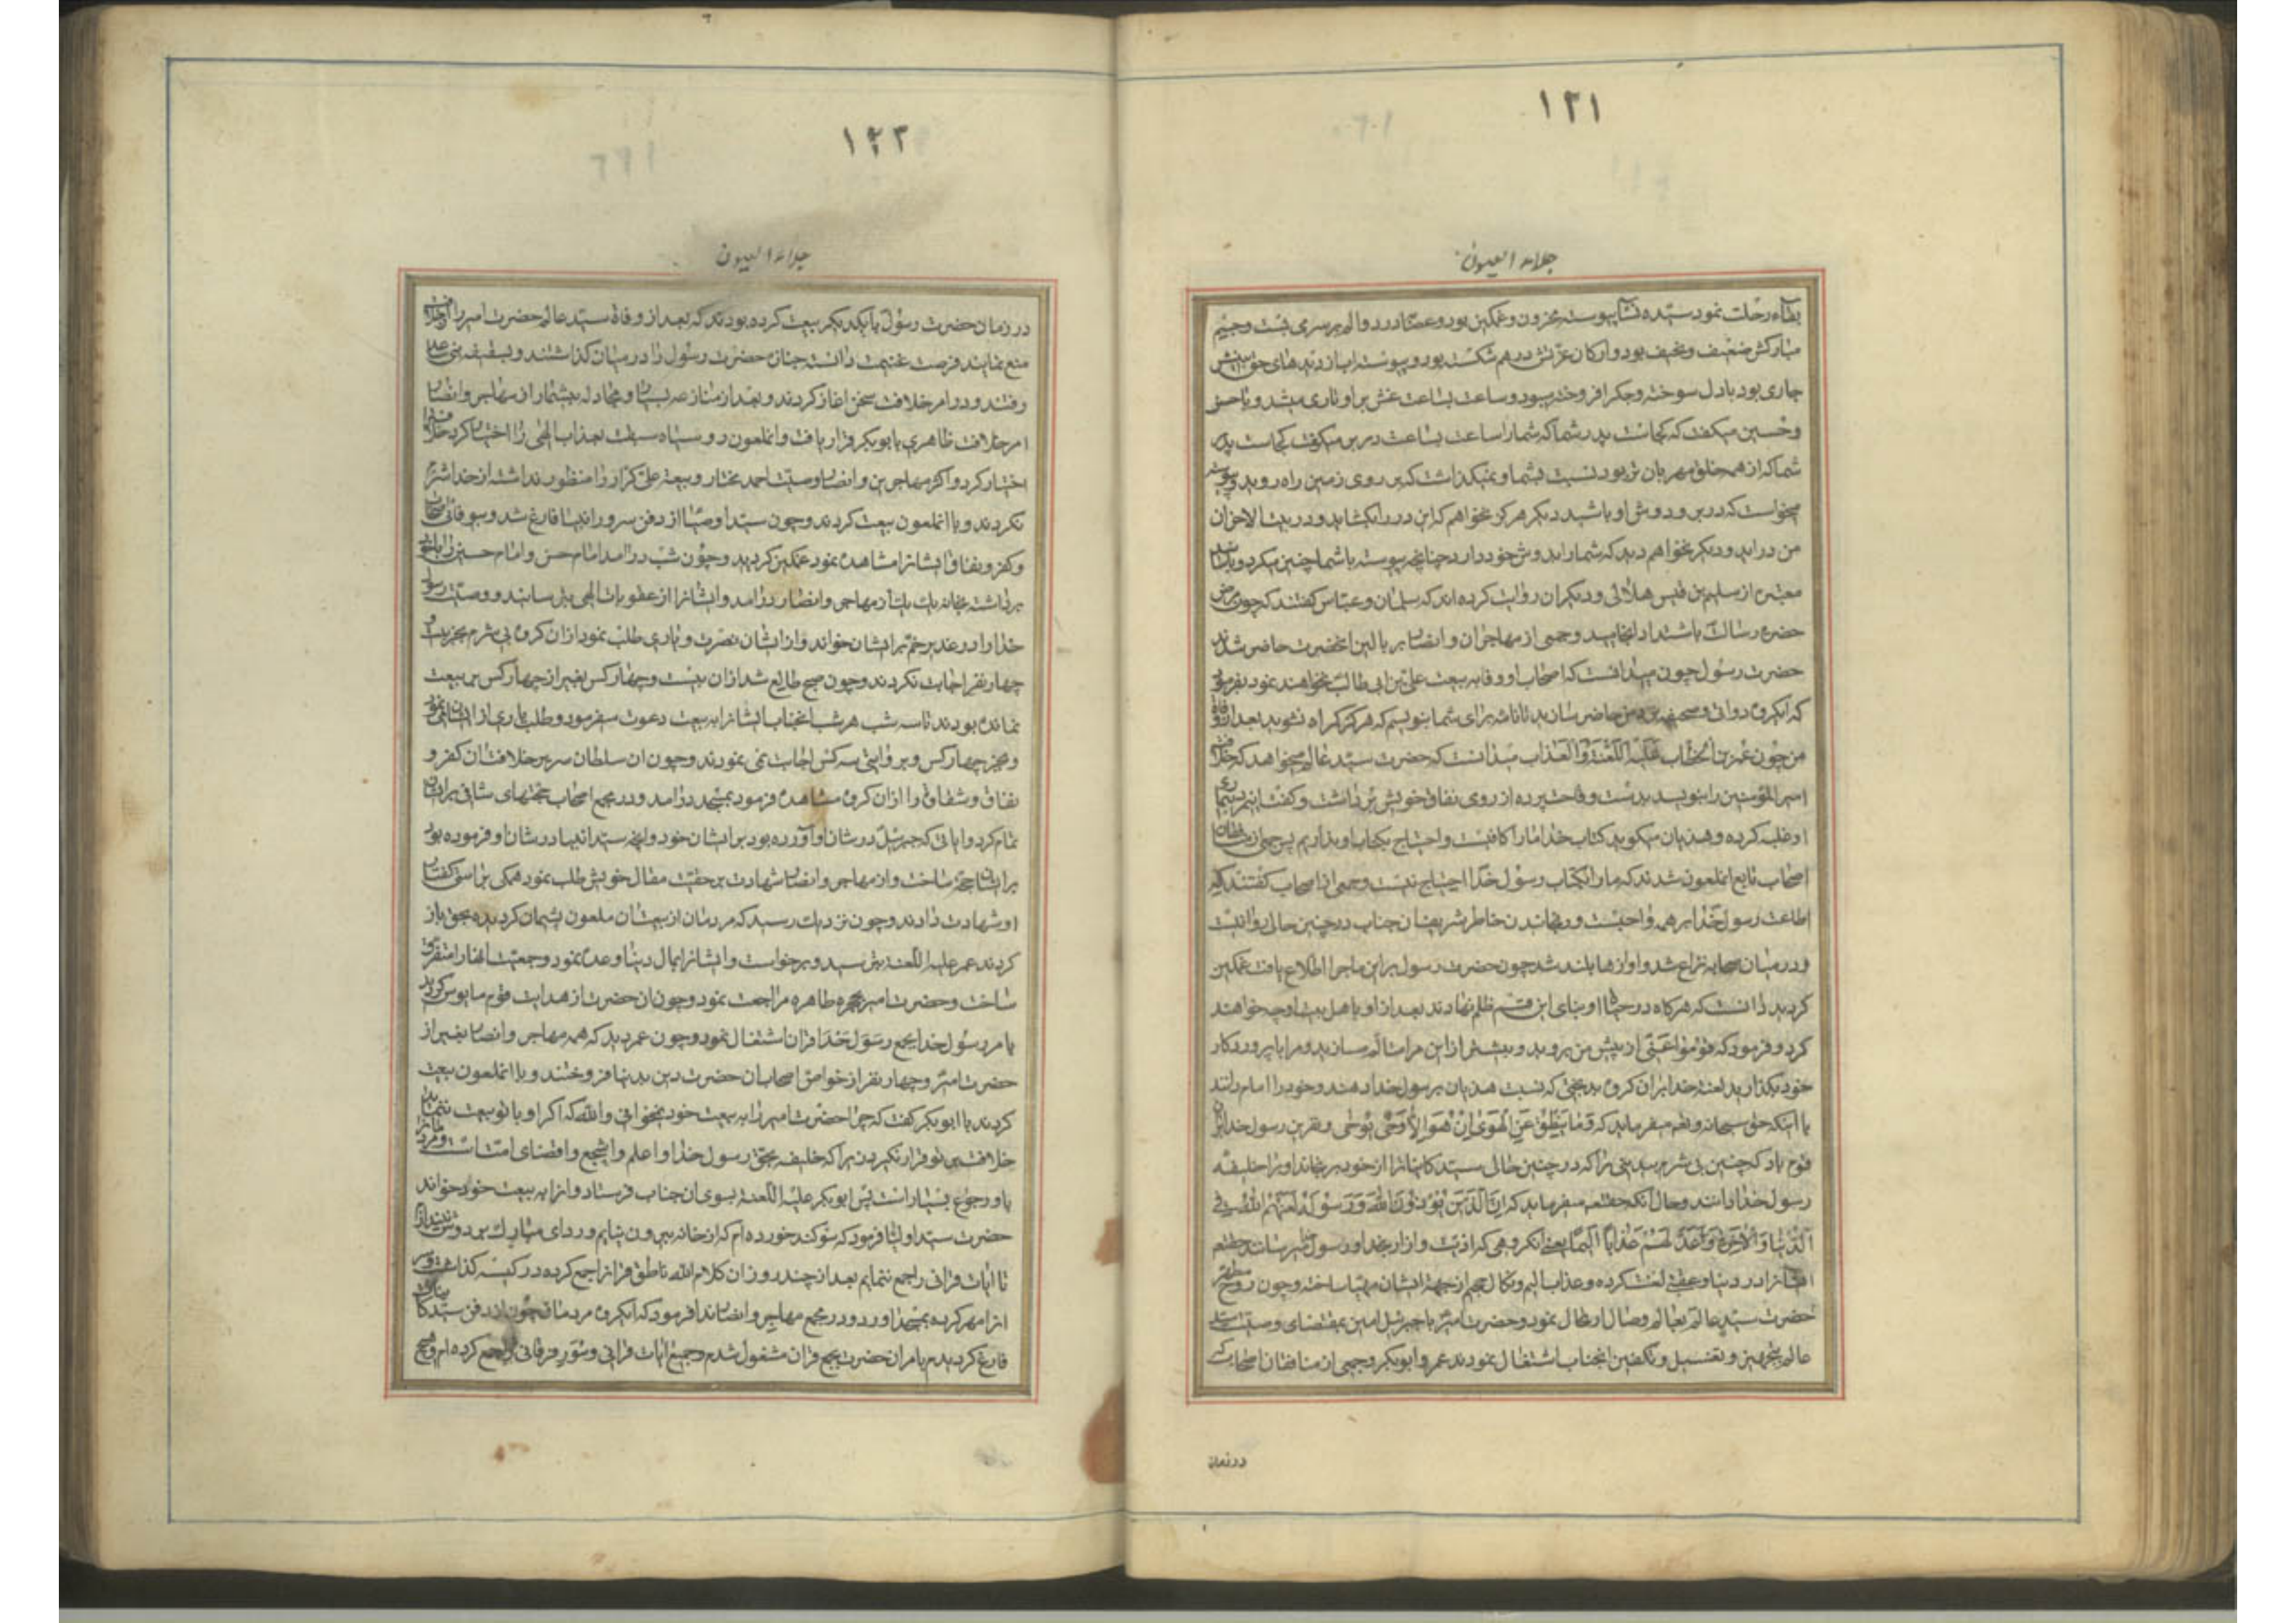 ۱۲۱
جلاء العیون
بقاء رحلت نمود سیّده نسآ پیوسته محزون و غمکین بود و عصابه درد و الم بر سر می بست و جسم
مبارکش ضعیف و نحیف بود و ارکان عزتش درهم شکسته بود و پیوسته آب از دیدهای حق بینش
جاری بود با دل سوخته و جکر افروخته میبود و ساعت بساعت غش بر او طاری میشد و با حسن
و حسین میکفت که کجاست پدر شما که شما را ساعت بساعت در بر میکرفت کجاست پدر
شما که از همه خلق مهربان تر بود نسبت بشما و نمیکذاشت که بر روی زمین راه روید و پیوسته
میخواست که در بر و دوش او باشید دیکر هرکز نخواهم که این در را بکشاید و در بیت الاحزان
من در اید و دیکر نخواهم دید که شما را بدوش خود دارد چنانچه پیوسته با شما چنین میکرد و بسند
معتبره از سلیم بن قیس هلالی و دیکران روایت کرده اند که سلمان و عباس کفتند که چون مرض
حضرت رسالت باشتداد انجامید و جمعی از مهاجران و انصار بر بالین انحضرت حاضر شدند
حضرت رسول چون میدانست که اصحاب او وفا به بیعت علی بن ابی طالب نخواهند نمود بفرمود
که ایکروه دواتی و صحیفه نزد من حاضر سازید تا نامه برای شما بنویسم که هرکز کمراه نشوید بعد از وفات
من چون عمر بن الخطاب علیه اللعنة و العذاب میدانست که حضرت سید عالم میخواهد که خلافت
امیر المؤمنین را بنویسد بدست وقاحت پرده از روی نفاق خویش برداشت و کفت این مرد بیماری
او غلبه کرده و هذیان میکوید کتاب خدا ما را کافیست و احتیاج بکتاب او نداریم پس جمعی از منافقان
اصحاب تابع انملعون شدند که ما را بکتاب رسول خدا احتیاج نیست و جمعی از اصحاب کفتند که
اطاعت رسول خدا بر همه واجبست و رنجاندن خاطر شریف ان جناب در چنین حالی روا نیست
و در میان صحابه نزاع شد و اوازها بلند شد چون حضرت رسول بر این ماجرا اطلاع یافت غمکین
کردید دانست که هرکاه در حیات او بنای این قسم ظلم نهادند بعد از او با اهل بیت او چه خواهند
کرد و فرمود که قوموا عنی از پیش من بروید و بیشتر از این مرا متالم مسازید و مرا با پروردکار
خود بکذارید لعنت خدا بران کروه بد بختی که نسبت هذیان برسول خدا دهند و خود را امام دانند
با آنکه حق سبحانه و تعم میفرماید که وَمَا يَنْطِقُ عَنِ الْهَوٰى اِنْ هُوَ اِلَّا وَحْىٌ يُوحٰى و نفرین رسول خدا بر ان
قوم باد که چنین بی شرم بیدینی را که در چنین حالی سید کاینات را از خود برنجاند او را خلیفه
رسول خدا دانند و حال آنکه حقتعم میفرماید که اِنَّ الَّذِينَ يُؤْذُونَ اللّٰهَ وَرَسُولَهُ لَعَنَهُمُ اللّٰهُ فِي
الدُّنْيَا وَالْاٰخِرَةِ وَاَعَدَّ لَهُمْ عَذَابًا اَلِيمًا یعنی انکروهی که اذیت و ازار بخدا و رسول میرسانند حقتعم
ایشانرا در دنیا و عقبی لعنت کرده و عذاب الیم و نکال جحیم از جهة ایشان مهیا ساخته و چون روح مطهر
حضرت سید عالم بعالم وصال ارتحال نمود و حضرت امیر با جبرئیل امین بمقتضای وصیت سید
عالم بتجهیز و تغسیل و تکفین انجناب اشتغال نمودند عمر و ابو بکر و جمعی از منافقان اصحاب که
در زمان
۱۲۲
جلاء العیون
در زمان حضرت رسول با یکدیکر بیعت کرده بودند که بعد از وفاة سید عالم حضرت امیر را از خلافت
منع نمایند فرصت غنیمت دانسته جنازه حضرت رسول را در میان کذاشتند و بسقیفه بنی ساعده
رفتند و در امر خلافت سخن اغاز کردند و بعد از منازعه بسیار و مجادله بیشمار از مهاجر و انصار
امر خلافت ظاهری بابو بکر قرار یافت و انملعون رو سیاه سبقت بعذاب الهی را اختیار کرد خلافت را
اختیار کرد و اکثر مهاجرین و انصار وصیت احمد مختار و بیعت علی کرار را منظور نداشته از خدا شرم
نکردند و با انملعون بیعت کردند و چون سید اوصیا از دفن سرور انبیا فارغ شد و بیوفائی صحابه
و کفر و نفاق ایشانرا مشاهده نمود غمکین کردید و چون شب درامد امام حسن و امام حسین را با خود
برداشته بخانه یک یک از مهاجر و انصار درامد و ایشانرا از عقوبات الهی بترسانید و وصیت رسول
خدا را در غدیر خم بر ایشان خواند و از ایشان نصرت و یاری طلب نمود از ان کروه بی شرم بجز بیست و
چهار نفر اجابت نکردند و چون صبح طالع شد از ان بیست و چهار کس بغیر از چهار کس بر بیعت
نمانده بودند تا سه شب هر شب انجناب ایشانرا به بیعت دعوت میفرمود و طلب یاری از ایشان مینمود
و بجز چهار کس و بروایتی سه کس اجابت نمی نمودند و چون ان سلطان سریر خلافت ان کفر و
نفاق و شقاق را از ان کروه مشاهده فرمود بمسجد درامد و در مجمع اصحاب حجتهای شافی بر ایشان
تمام کرد و ایاتی که جبرئیل در شان او آورده بود بر ایشان خود و انچه سید انبیا در شان او فرموده بود
بر ایشان حجة ساخت و از مهاجر و انصار شهادت بر حقیت مقال خویش طلب نمود همکی بر راستی کفتار
او شهادت دادند و چون نزدیک رسید که مردمان از بیعت ان ملعون پشیمان کردیده بحق باز
کردند عمر علیه اللعنه بترسید و برخواست و ایشانرا بمال دنیا وعده نمود و جمعیت انها را متفرق
ساخت و حضرت امیر بحجره طاهره مراجعت نمود و چون ان حضرت از هدایت قوم مایوس کردید
بامر رسول خدا بجمع قران اشتغال نمود و چون عمر دید که همه مهاجر و انصار بغیر از
حضرت امیر و چهار نفر از خواص اصحاب ان حضرت دین بدنیا فروختند و با انملعون بیعت
کردند با ابو بکر کفت که چرا حضرت امیر را به بیعت خود نمیخوانی و الله که اکر او با تو بیعت ننماید
خلافت بر تو قرار نکیرد زیرا که خلیفه بحق رسول خدا و اعلم و اشجع و اقضای امت است و مردم را
باو رجوع بسیار است پس ابو بکر علیه اللعنه بسوی ان جناب فرستاد و او را به بیعت خود خواند
حضرت سید اولیا فرمود که سوکند خورده ام که از خانه بیرون نیایم و ردای مبارک بر دوش نیندازم
تا ایات قرانی را جمع ننمایم بعد از چند روز ان کلام الله ناطق قرانرا جمع کرده در کیسه کذاشت و سر
انرا مهر کرده بمسجد اورد و در مجمع مهاجر و انصار ندا فرمود که ایکروه مردمان چون از دفن سید کاینات
فارغ کردیدم بامر ان حضرت بجمع قران مشغول شدم و جمیع ایات قرانی و سور فرقانی را جمع کرده ام و هیچ